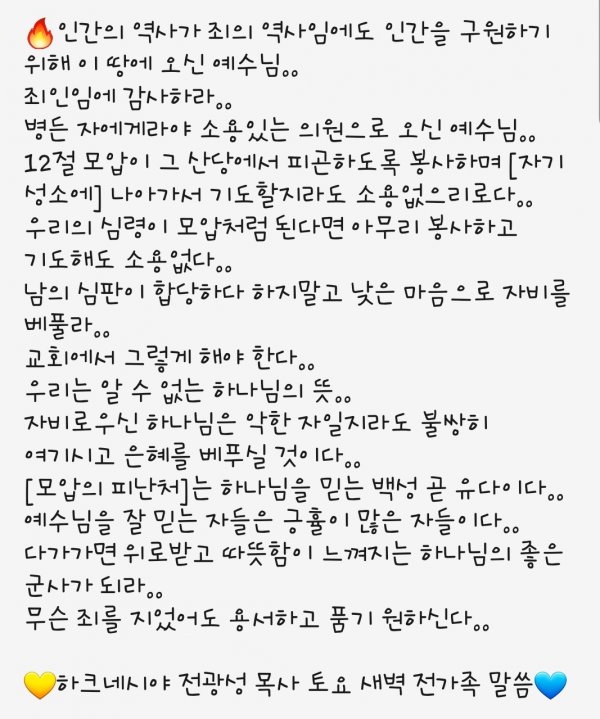 🔥인간의 역사가 죄의 역사임에도 인간을 구원하기
위해 이 땅에 오신 예수님。。
죄인임에 감사하라。。
병든 자에게라야 소용있는 의원으로 오신 예수님。。
12절 모압이 그 산당에서 피곤하도록 봉사하며 [자기
성소에] 나아가서 기도할지라도 소용없으리로다。。
우리의 심령이 모압처럼 된다면 아무리 봉사하고
기도해도 소용없다。。
남의 심판이 합당하다 하지말고 낮은 마음으로 자비를
베풀라。。
교회에서 그렇게 해야 한다。。
우리는 알 수 없는 하나님의 뜻。。
자비로우신 하나님은 악한 자일지라도 불쌍히
여기시고 은혜를 베푸실 것이다。。
[모압의 피난처]는 하나님을 믿는 백성 곧 유다이다。。
예수님을 잘 믿는 자들은 긍휼이 많은 자들이다。。
다가가면 위로받고 따뜻함이 느껴지는 하나님의 좋은
군사가 되라。。
무슨 죄를 지었어도 용서하고 품기 원하신다。。
💛하크네시야 전광성 목사 토요 새벽 전가족 말씀💙